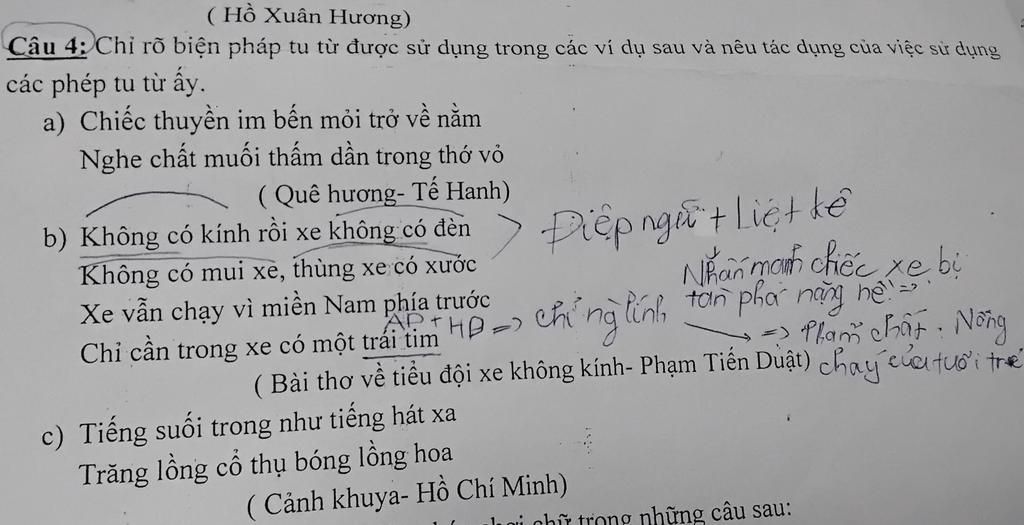 ( Hồ Xuân Hương)
Câu 4: Chỉ rõ biện pháp tu từ được sử dụng trong các ví dụ sau và nêu tác dụng của việc sử dụng
các phép tu từ ấy.
a) Chiếc thuyền im bến mỏi trở về nằm
Nghe chất muối thấm dần trong thớ vỏ
( Quê hương- Tế Hanh)
b) Không có kính rồi xe không có đèn
Điệp ngữ + Liệt kê
Không có mui xe, thùng xe có xước
Nhấn mạnh chiếc xe bị
Xe vẫn chạy vì miền Nam phía trước
tàn phá nặng nề =>
AD + HD => chỉ ng lính
Chỉ cần trong xe có một trái tim
=> Phẩm chất . Nồng
cháy của tuổi trẻ
( Bài thơ về tiểu đội xe không kính- Phạm Tiến Duật)
c) Tiếng suối trong như tiếng hát xa
Trăng lồng cổ thụ bóng lồng hoa
( Cảnh khuya- Hồ Chí Minh)
chữ trong những câu sau: